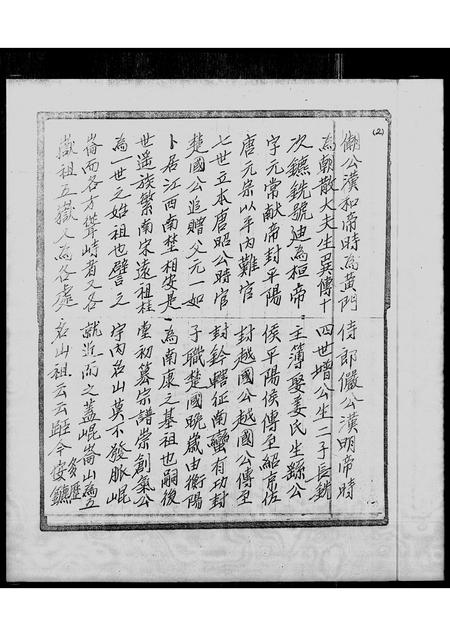 (2)
僩公漢和帝時為黃門侍郎儼公漢明帝時
為朝散大夫生巽傳十四世增公生二子長銑
次鑣銑號迪為桓帝主簿娶姜氏生縣公
字元常献帝封平陽侯平陽侯傳至紹京佐
唐元宗以平內難官封越國公越國公傳至
七世立本唐昭公時官封鈐轄征南蠻有功封
楚國公追贈父元一如子職楚國晚歲由衡陽
卜居江西南埜相安是為南康之基祖也嗣後
世遥族繁南宋遠祖桂堂初纂宗譜崇創集公
為一世之始祖也譬之宇內名山莫不發脈崐
崙而各方聳峙者又各就近而之蓋崐崙山為五
嶽祖五嶽又為各處名山祖云云駈今安鑣
务歷